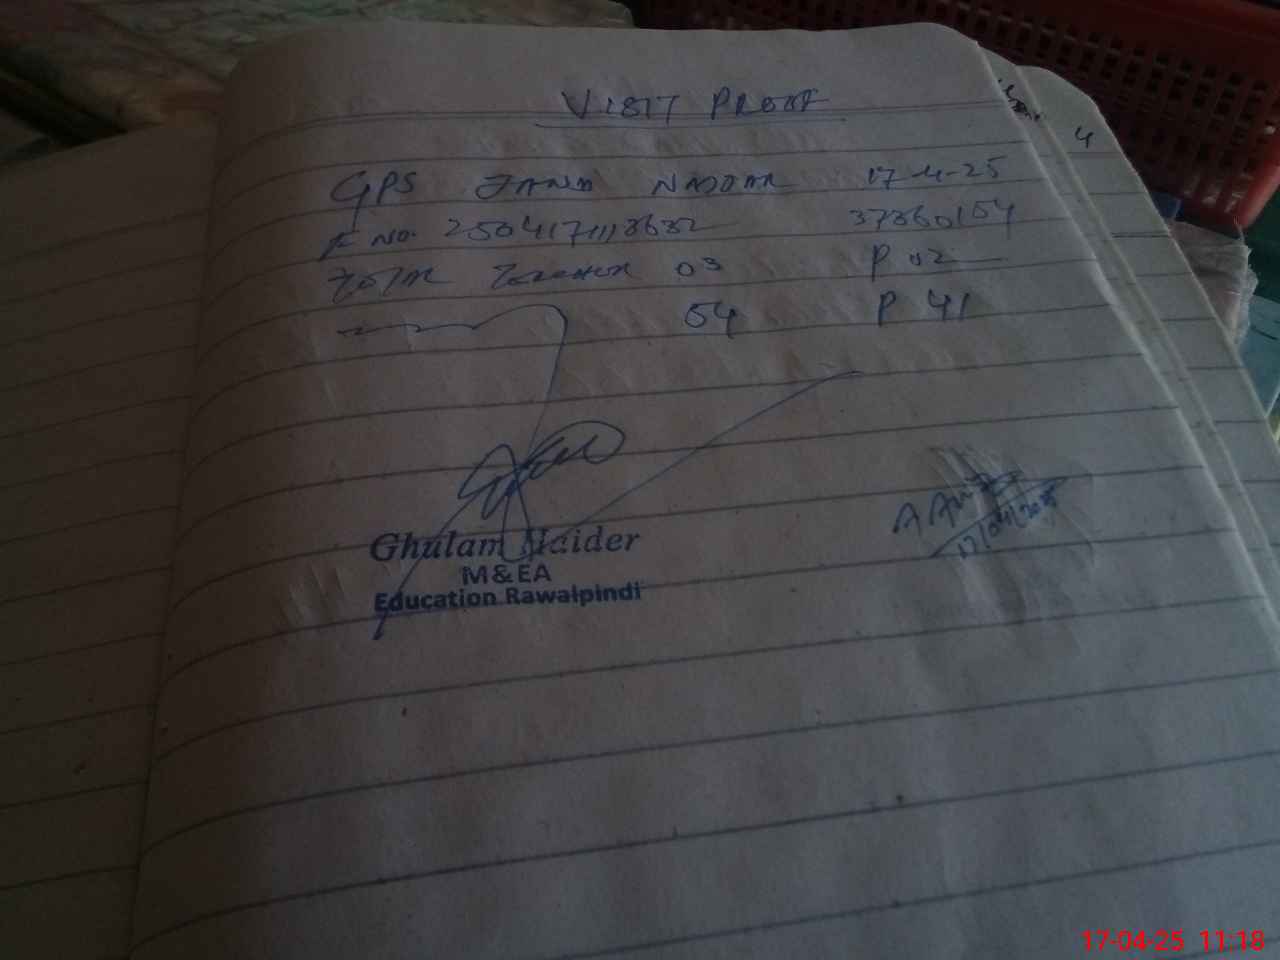 VISIT PROOF
GPS JAND NAJJAR 17-4-25
F NO. 2504171113632 37360154
TOTAL Teacher 03 P 02
54 P 41
Ghulam Haider
M&EA
Education Rawalpindi
17/04/2025
4
17-04-25 11:18